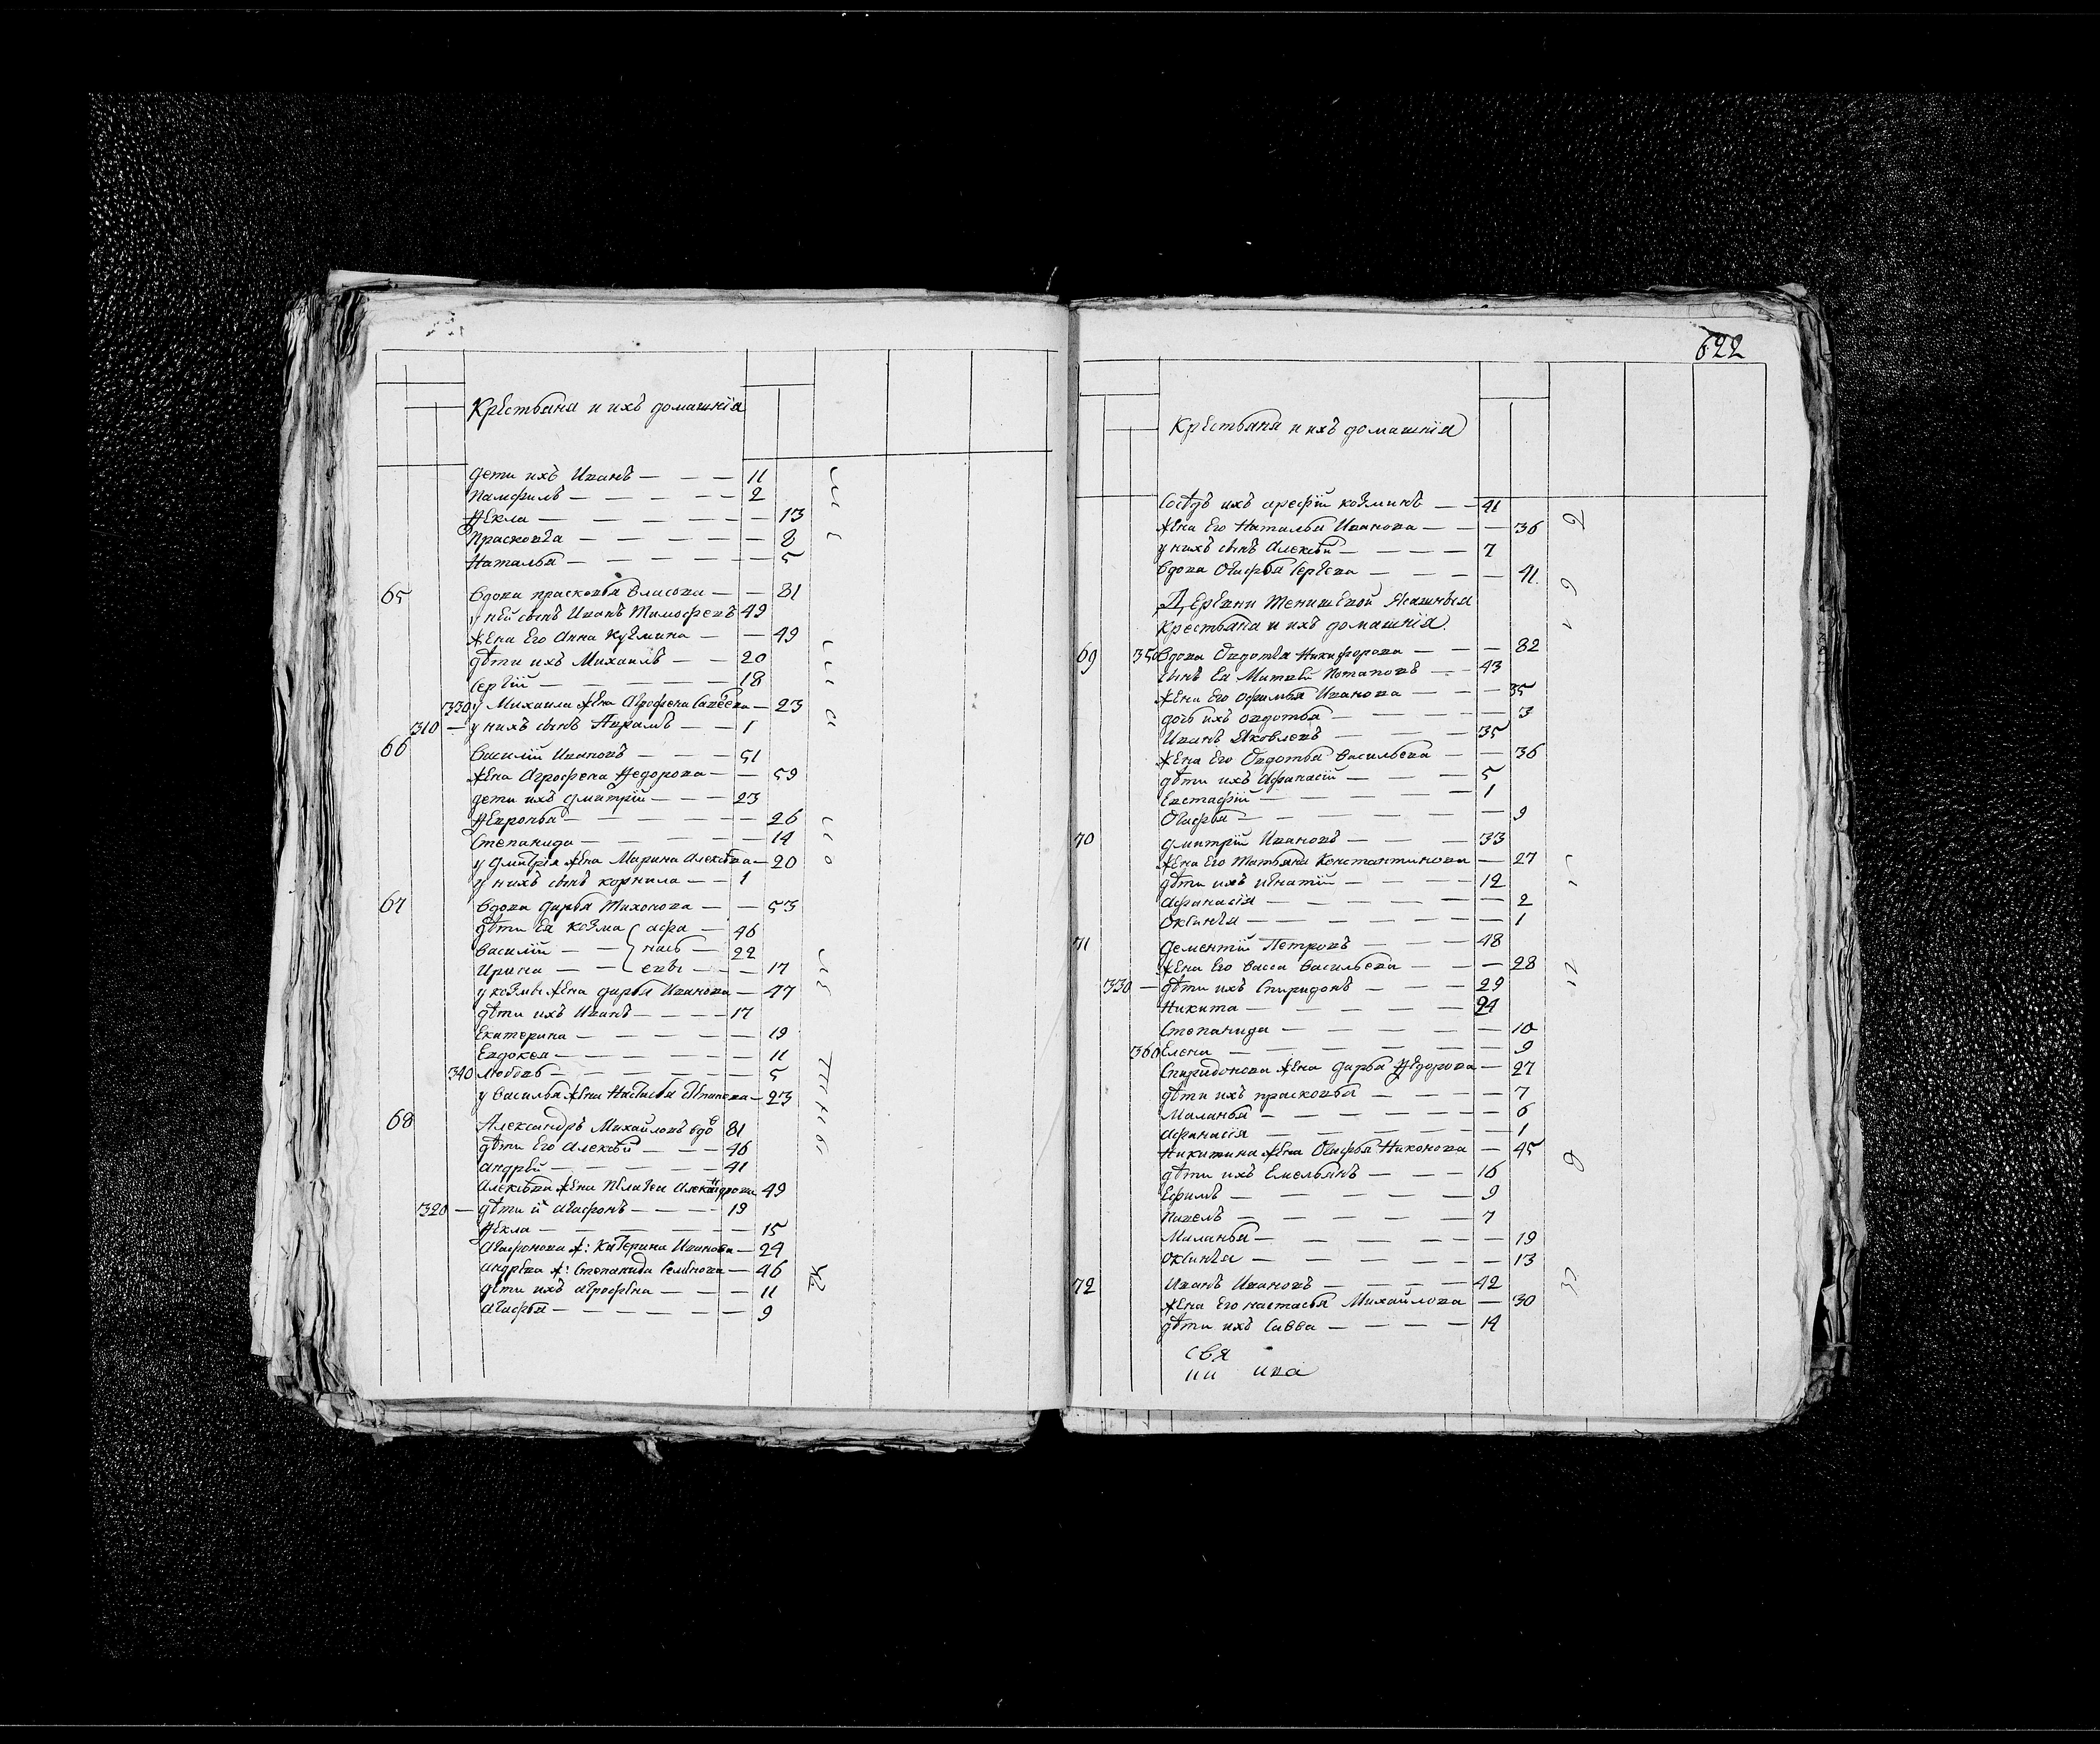 Крестьяна и ихъ домашнія
дети ихъ Иванъ — — — 11
Памфилъ — — — — — 2
Ѳекла — — — — — 13
Прасковѣа — — — — — 8
Наталья — — — — — 5
65 вдова прасковья власова — — 81
у ней сынъ Иванъ Тимофеевъ 49
жена его Анна Кузмина — — 49
дѣти ихъ Михаилъ — — 20
Сергѣй — — — — — 18
330 у Михаила жена Агрофена Савеева — 23
310 — у нихъ сынъ Авраамъ — — 1
66 василіи Ивановъ — — — 51
жена Агрофена Ѳедорова — — 59
дети ихъ дмитріи — — — 23
Ѳевронья — — — — — 26
Степанида — — — — 14
у дмитрія жена Марина Алексѣва — 20
у нихъ сынъ корнила — — 1
67 вдова дарья Тихонова — — 53
дѣти ея козма { афа — 46
василіи — — { нась — 22
Ирина — — { евы — — 17
у козмы жена дарья Иванова — 47
дѣти ихъ Иванъ — — — — 17
Екатерина — — — — — 19
Евдокея — — — — — 11
340 любовь — — — — — 5
у василья жена Настасья Степанова — 23
68 Александръ Михайловъ вдов 81
дѣти его Алексѣй — — — 46
андрѣй — — — — — 41
алексѣва жена Пелагеи Александрова 49
320 — дѣти и агафонъ — — — — 19
Ѳекла — — — — — 15
агафонова ж: Катерина Иванова — 24
андрѣва ж: Степанида Семенова — 46
дѣти ихъ агрофѣна — — — 11
агафья — — — — — 9
622
Крестьяна и ихъ домашнія
сосѣдъ ихъ арефіи козминъ — — 41
жена его Наталья Иванова — — — 36
у нихъ сынъ Алексѣй — — — — 7
вдова Огафья Сергѣева — — — — 41
Деревни Тенишевой Ясашныя
крестьяна и ихъ домашнія
69 350 вдова Овдотья Никифорова — — — 82
сынъ ея Матвѣй Потаповъ — — 43
жена его Офимья Иванова — — — 35
дочь ихъ овдотья — — — — 3
Иванъ Яковлевъ — — — — 35
жена его Овдотья васильева — — 36
дѣти ихъ Афанасіи — — — 5
Евстафіи — — — — — 1
Огафья — — — — — 9
70 дмитріи Ивановъ — — — — 33
жена его Татьяна Константинова — 27
дѣти ихъ игнатіи — — — — 12
афанасія — — — — — 2
Оксинѣа — — — — — 1
71 дементіи Петровъ — — — — 48
жена его васса васильева — — — 28
330 — дѣти ихъ Спиридонъ — — — 29
Никита — — — — — 24
Степанида — — — — — 10
360 Елена — — — — — 9
Спиридонова жена дарья Ѳедорова — 27
дѣти ихъ прасковья — — — — 7
Маланья — — — — — 6
афанасія — — — — — 1
Никитина жена Огафья Никонова — 45
дѣти ихъ Емельянъ — — — 16
Ефимъ — — — — — 9
Павелъ — — — — — 7
Маланья — — — — — 19
оксинѣа — — — — — 13
72 Иванъ Ивановъ — — — — 42
жена его настасья Михайлова — 30
дѣти ихъ Савва — — — — 14
свя